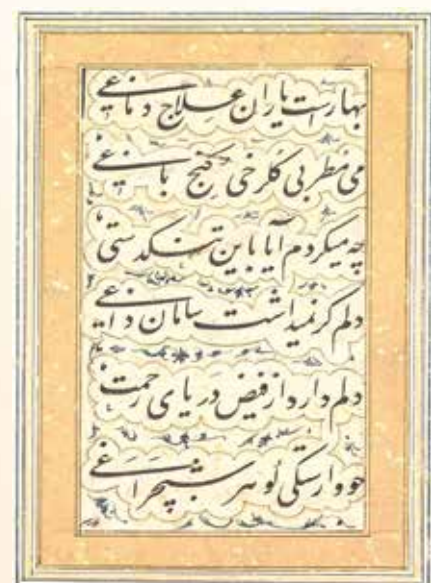 بهارست یاران علاج دماغی
می مطربی گلرخی کنج باغی
چه میکردم آیا باین تنگدستی
دلم گر نمیداشت سامان داغی
دلم دارد از فیض دریای رحمت
چو وارستگی گوهر شبچراغی